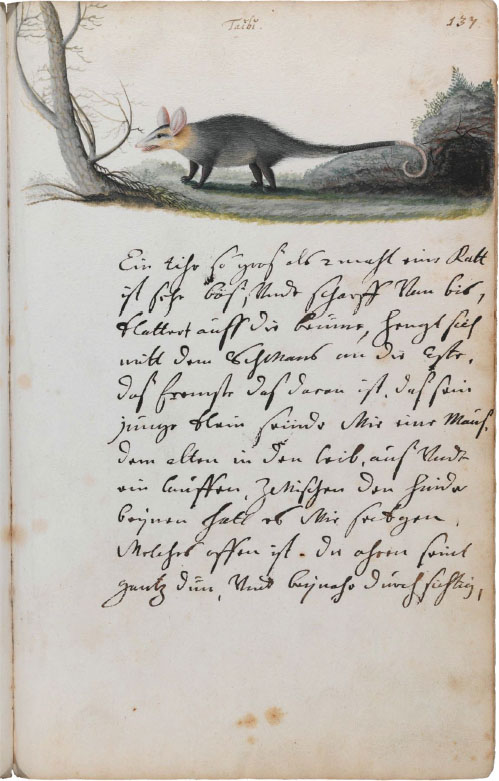 Taibi.
137.
Ein tihr so gros als 2 mahl eine Ratt
ist sehr bös, Vndt scharff Von bis,
klattert auff die beume, hengt sich
mitt dem Schwans an die este,
das fremste das daran ist, das sein
junge klein seinde Wie eine Maus.
dem alten in den leib, aus Vndt
ein lauffen, Zwischen den hinder
beijnen hatt es Wie
Welches offen ist. die ohren seint
gantz dün, Vnd beijnahe durchsichtig,